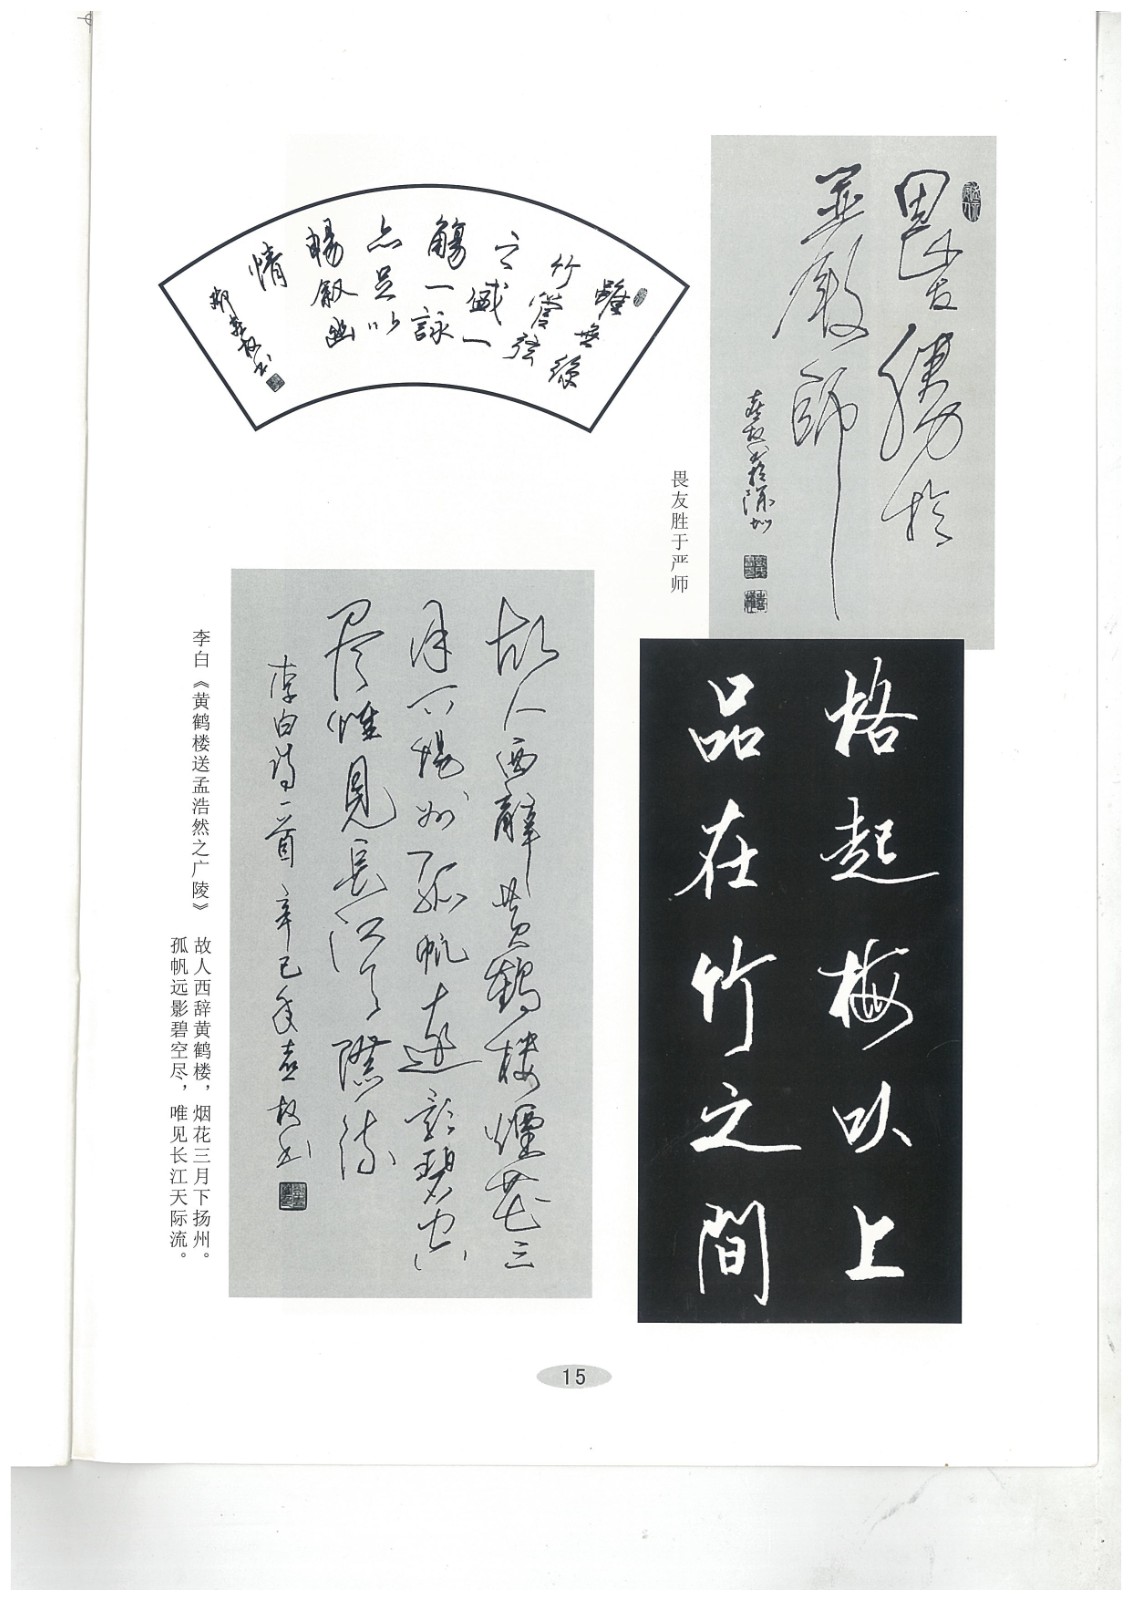 畏友勝於
並嚴師
畏友胜于严师
雖無絲
竹管弦
之盛一
觴一詠
亦足以
暢敘幽
情
格起梅以上
品在竹之間
故人西辭黄鶴樓煙花三
月下揚州孤帆遠影碧空
盡惟見長江天際流
李白詩一首辛巳年
李白《黄鹤楼送孟浩然之广陵》
故人西辞黄鹤楼，烟花三月下扬州。
孤帆远影碧空尽，唯见长江天际流。
15